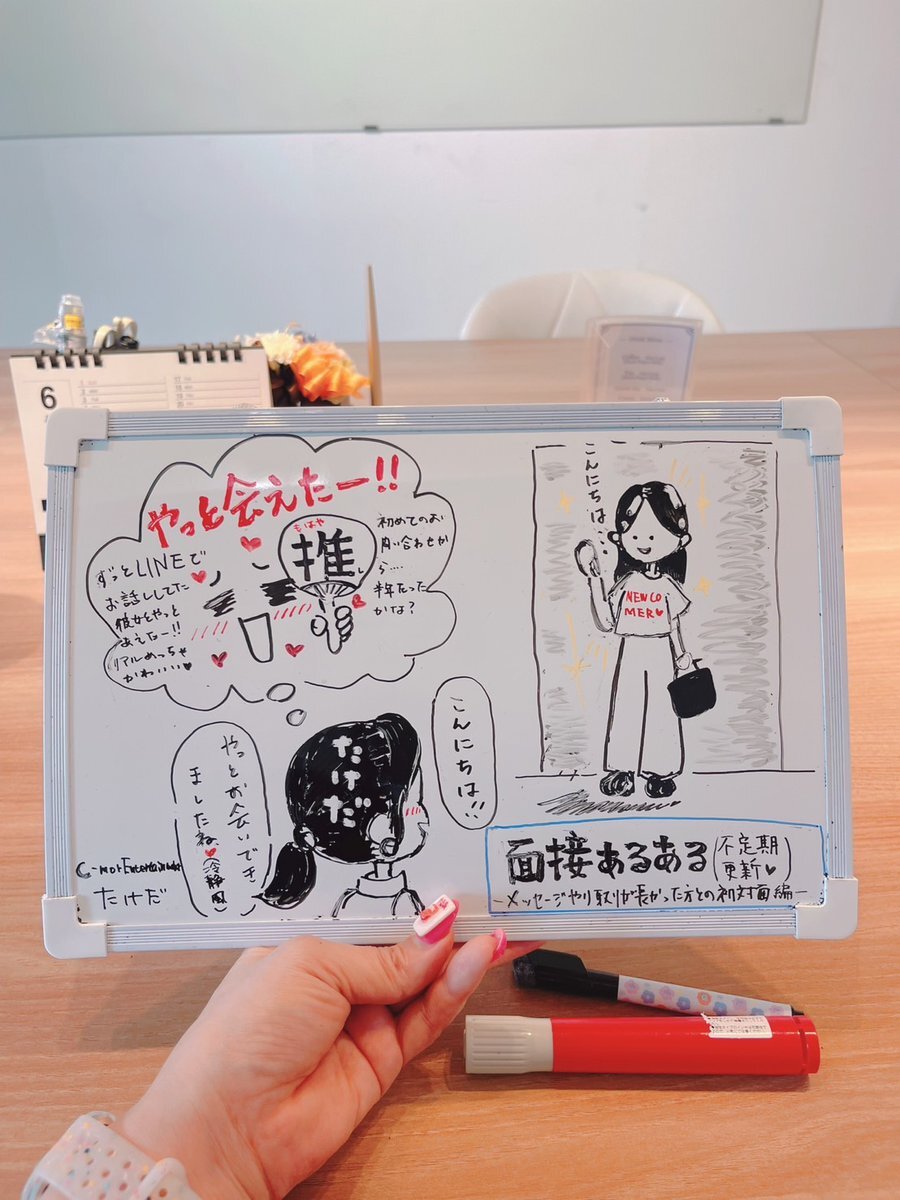 6
やっと会えたー!!
ずっとLINEで
お話ししてた
彼女とやっと
会えたー!!
リアルめっちゃ
かわいい♥
もはや
推し
初めてのお
問い合わせか
ら…
半年たった
かな?
こんにちは…
NEW CO
MER♥
こんにちは!!
たけだ
やっとお会いでき
ましたね♥(冷静風)
C-mor Entertainment
たけだ
面接あるある(不定期
更新♥)
-メッセージやり取りが長かった方との初対面編-